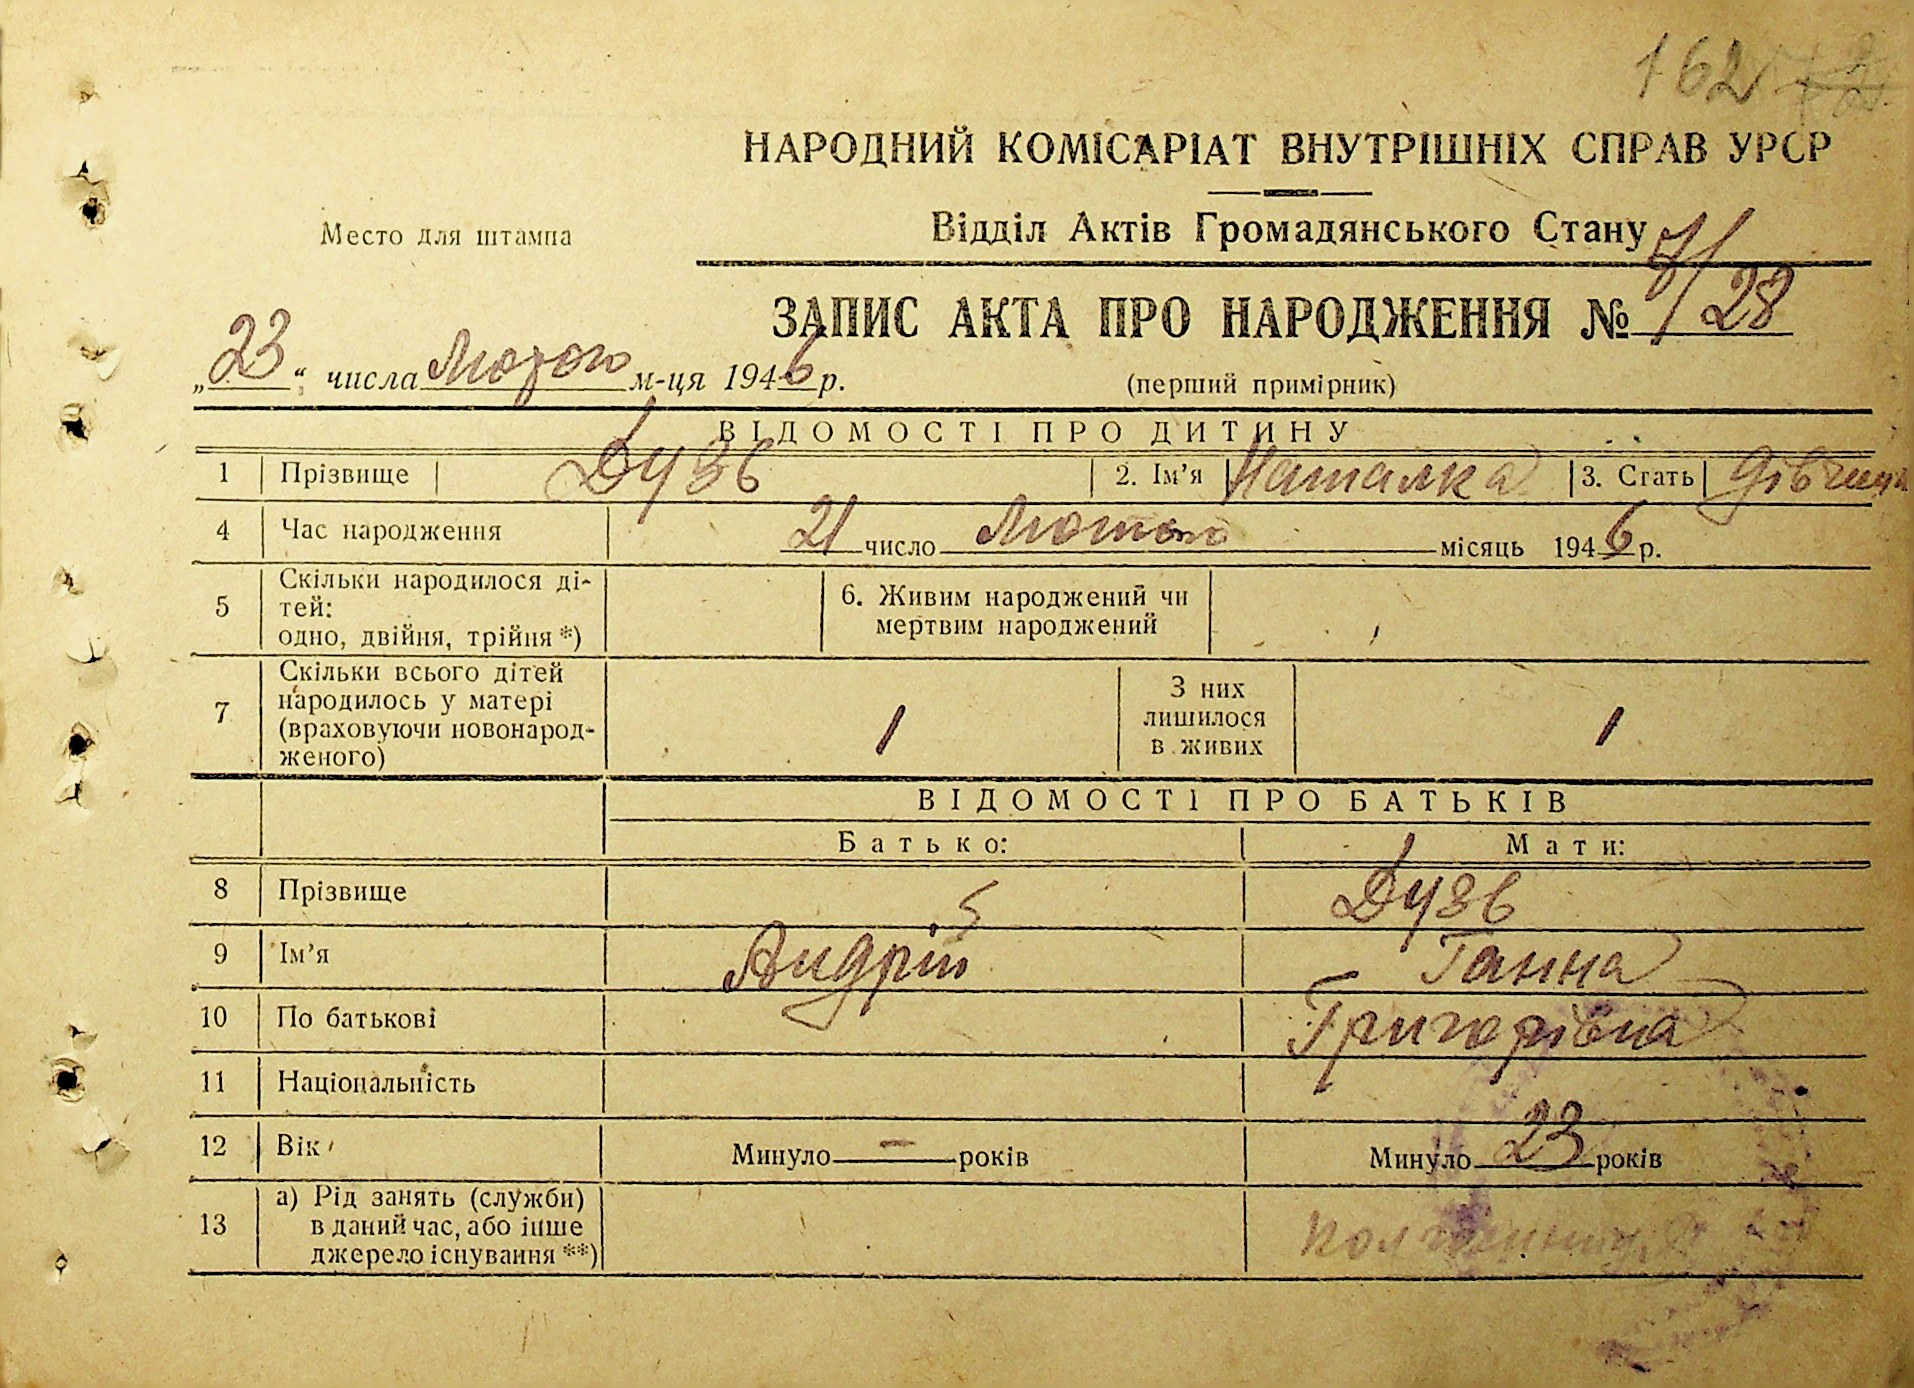 162
НАРОДНИЙ КОМІСАРІАТ ВНУТРІШНІХ СПРАВ УРСР
Место для штампа
Відділ Актів Громадянського Стану
ЗАПИС АКТА ПРО НАРОДЖЕННЯ № 7/28
„23“ числа Лютого м-ця 1946 р.
(перший примірник)
ВІДОМОСТІ ПРО ДИТИНУ
1 Прізвище Дузь 2. Ім’я Наталка 3. Стать дівчина
4 Час народження 21 число Лютого місяць 1946 р.
5 Скільки народилося ді-
тей:
одно, двійня, трійня *)
6. Живим народжений чи
мертвим народжений
7 Скільки всього дітей
народилось у матері
(враховуючи новонарод-
женого)
1
З них
лишилося
в живих
1
ВІДОМОСТІ ПРО БАТЬКІВ
Батько: Мати:
8 Прізвище Дузь
9 Ім’я Андрій Ганна
10 По батькові Григорівна
11 Національність
12 Вік Минуло — років Минуло 23 років
13 а) Рід занять (служби)
в даний час, або інше
джерело існування **)